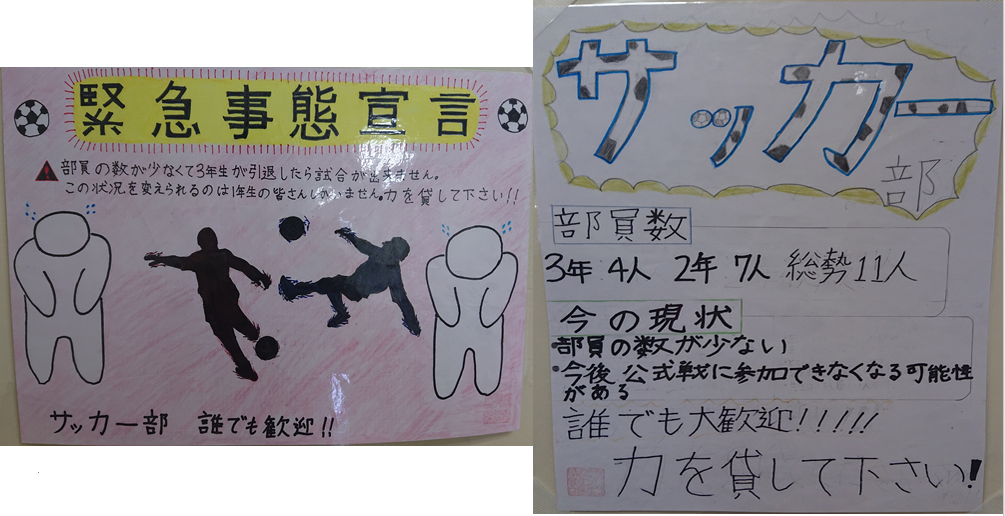 緊急事態宣言
部員の数が少なくて3年生が引退したら試合が出来ません。
この状況を変えられるのは1年生の皆さんしかいません。力を貸して下さい!!
サッカー部 誰でも歓迎!!
サッカー
部
部員数
3年 4人 2年 7人 総勢11人
今の現状
・部員の数が少ない
・今後 公式戦に参加できなくなる可能性
がある
誰でも大歓迎!!!!!
力を貸して下さい!